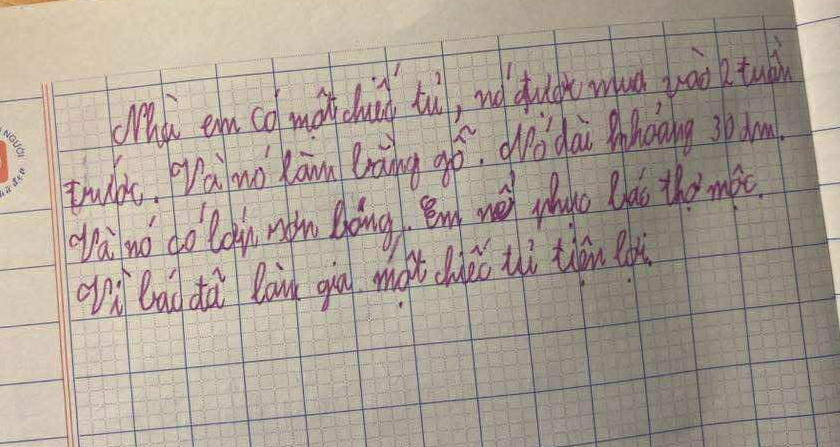 Nhà em có một chiếc tủ, nó được mua vào 2 tuần
trước. Và nó làm bằng gỗ. Nó dài khoảng 30 dm.
Và nó có lớp sơn bóng. Em nể phục bác thợ mộc.
Vì bác đã làm gia một chiếc tủ tiện lợi.
NGƯỜI